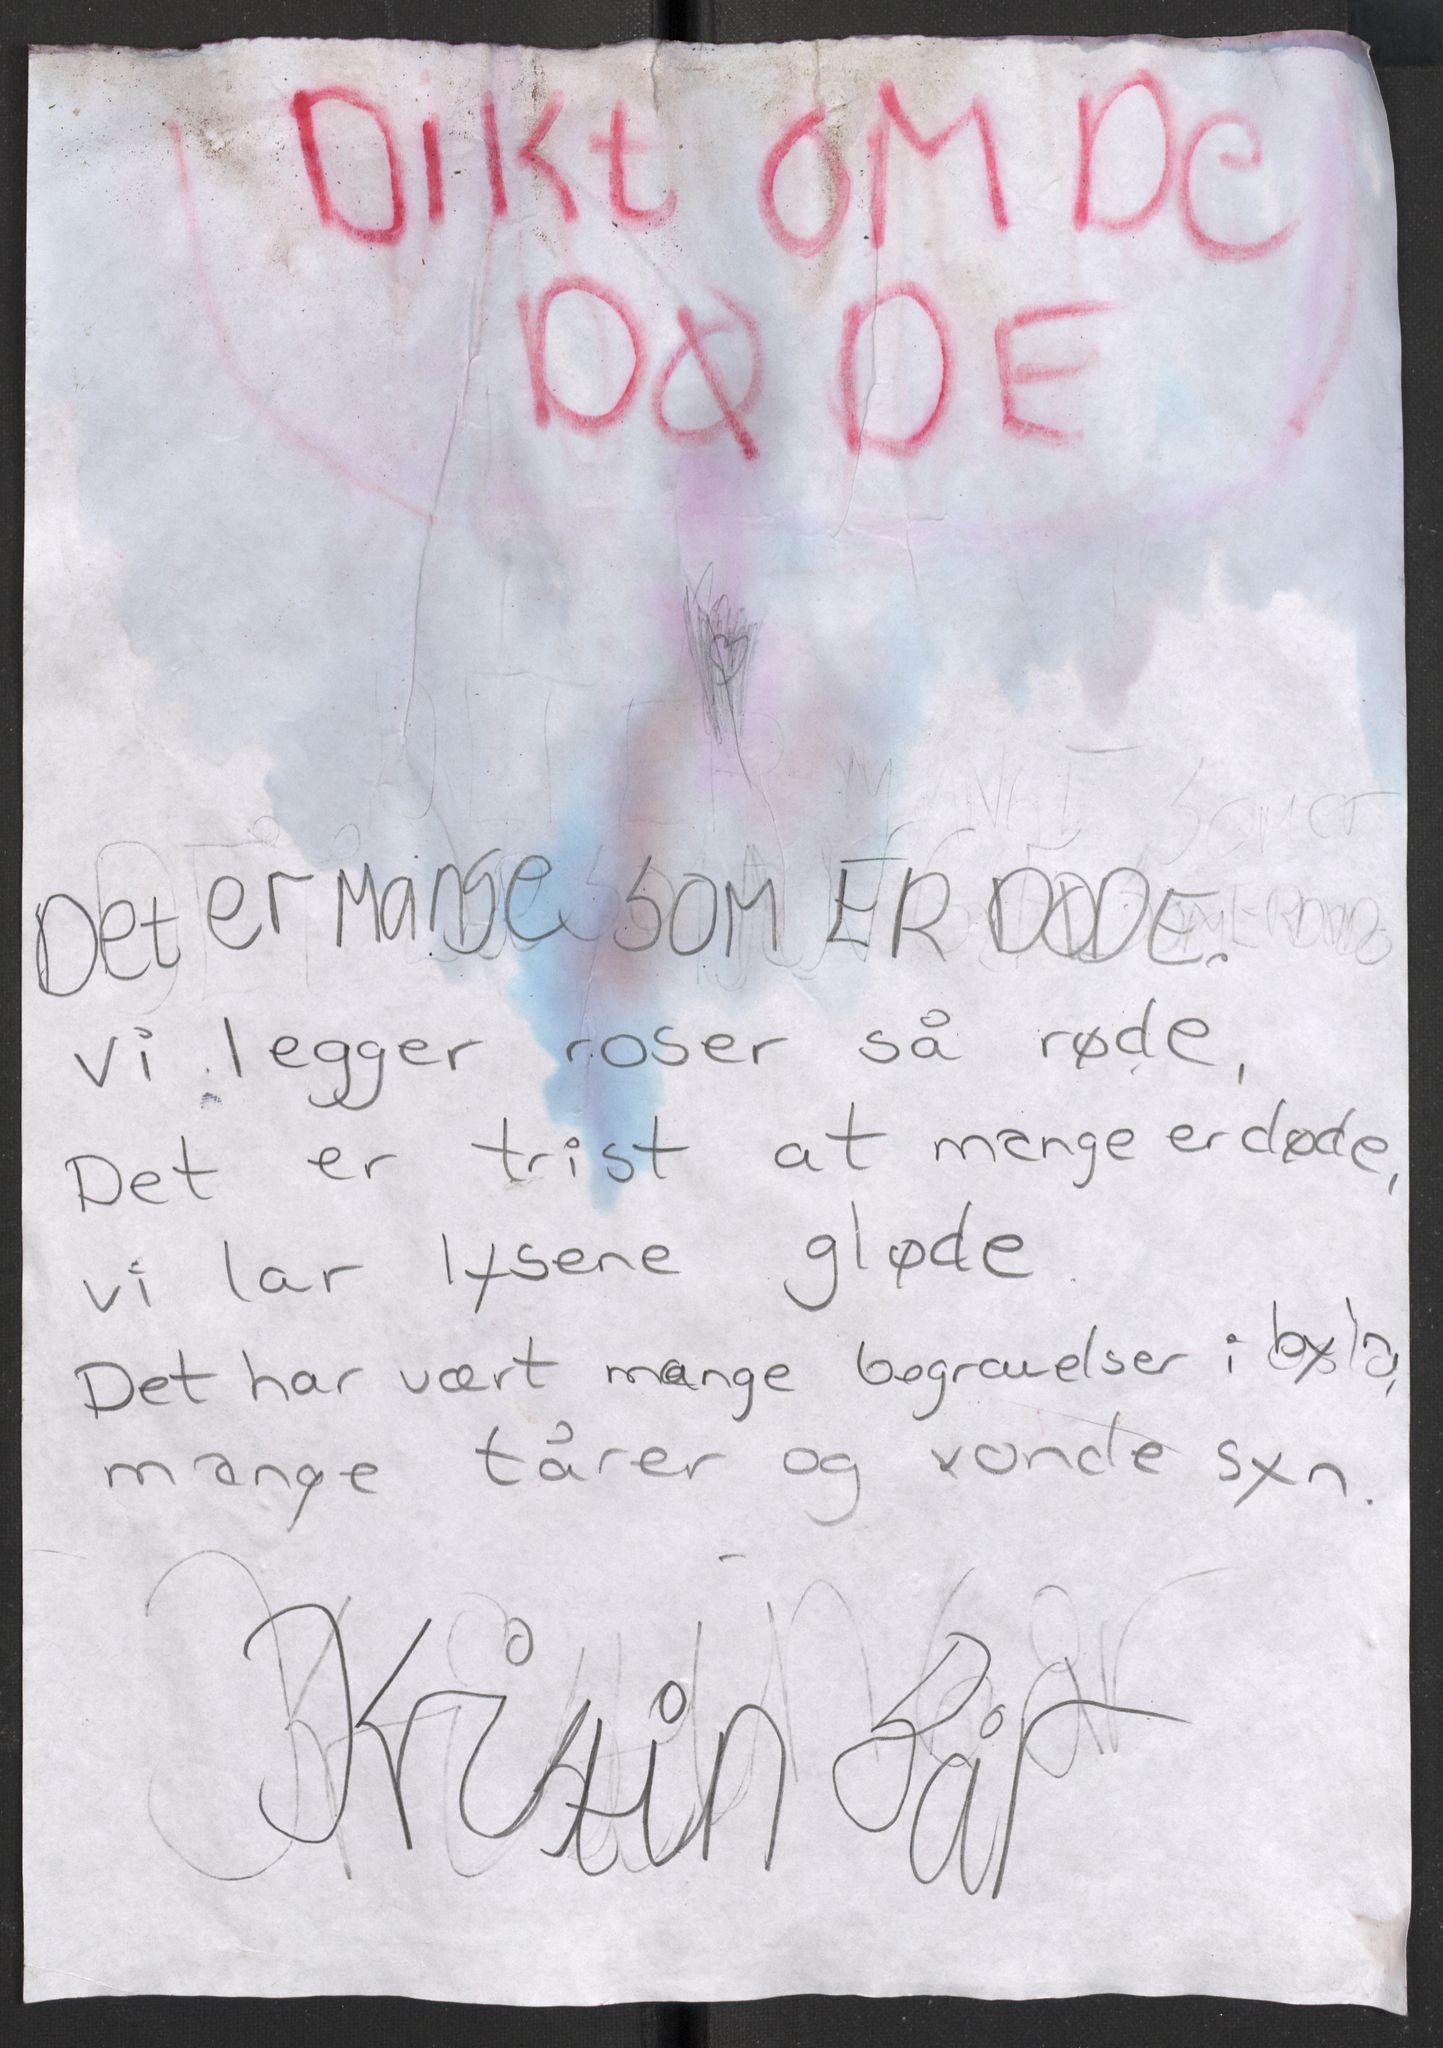 DiKt OM De
DØDE
Det er Mange SOM ER DØDE.
vi legger roser så røde,
Det er trist at mange er døde,
vi lar lysene gløde.
Det har vært mange begravelser i
mange tårer og vonde syn.
Kristin